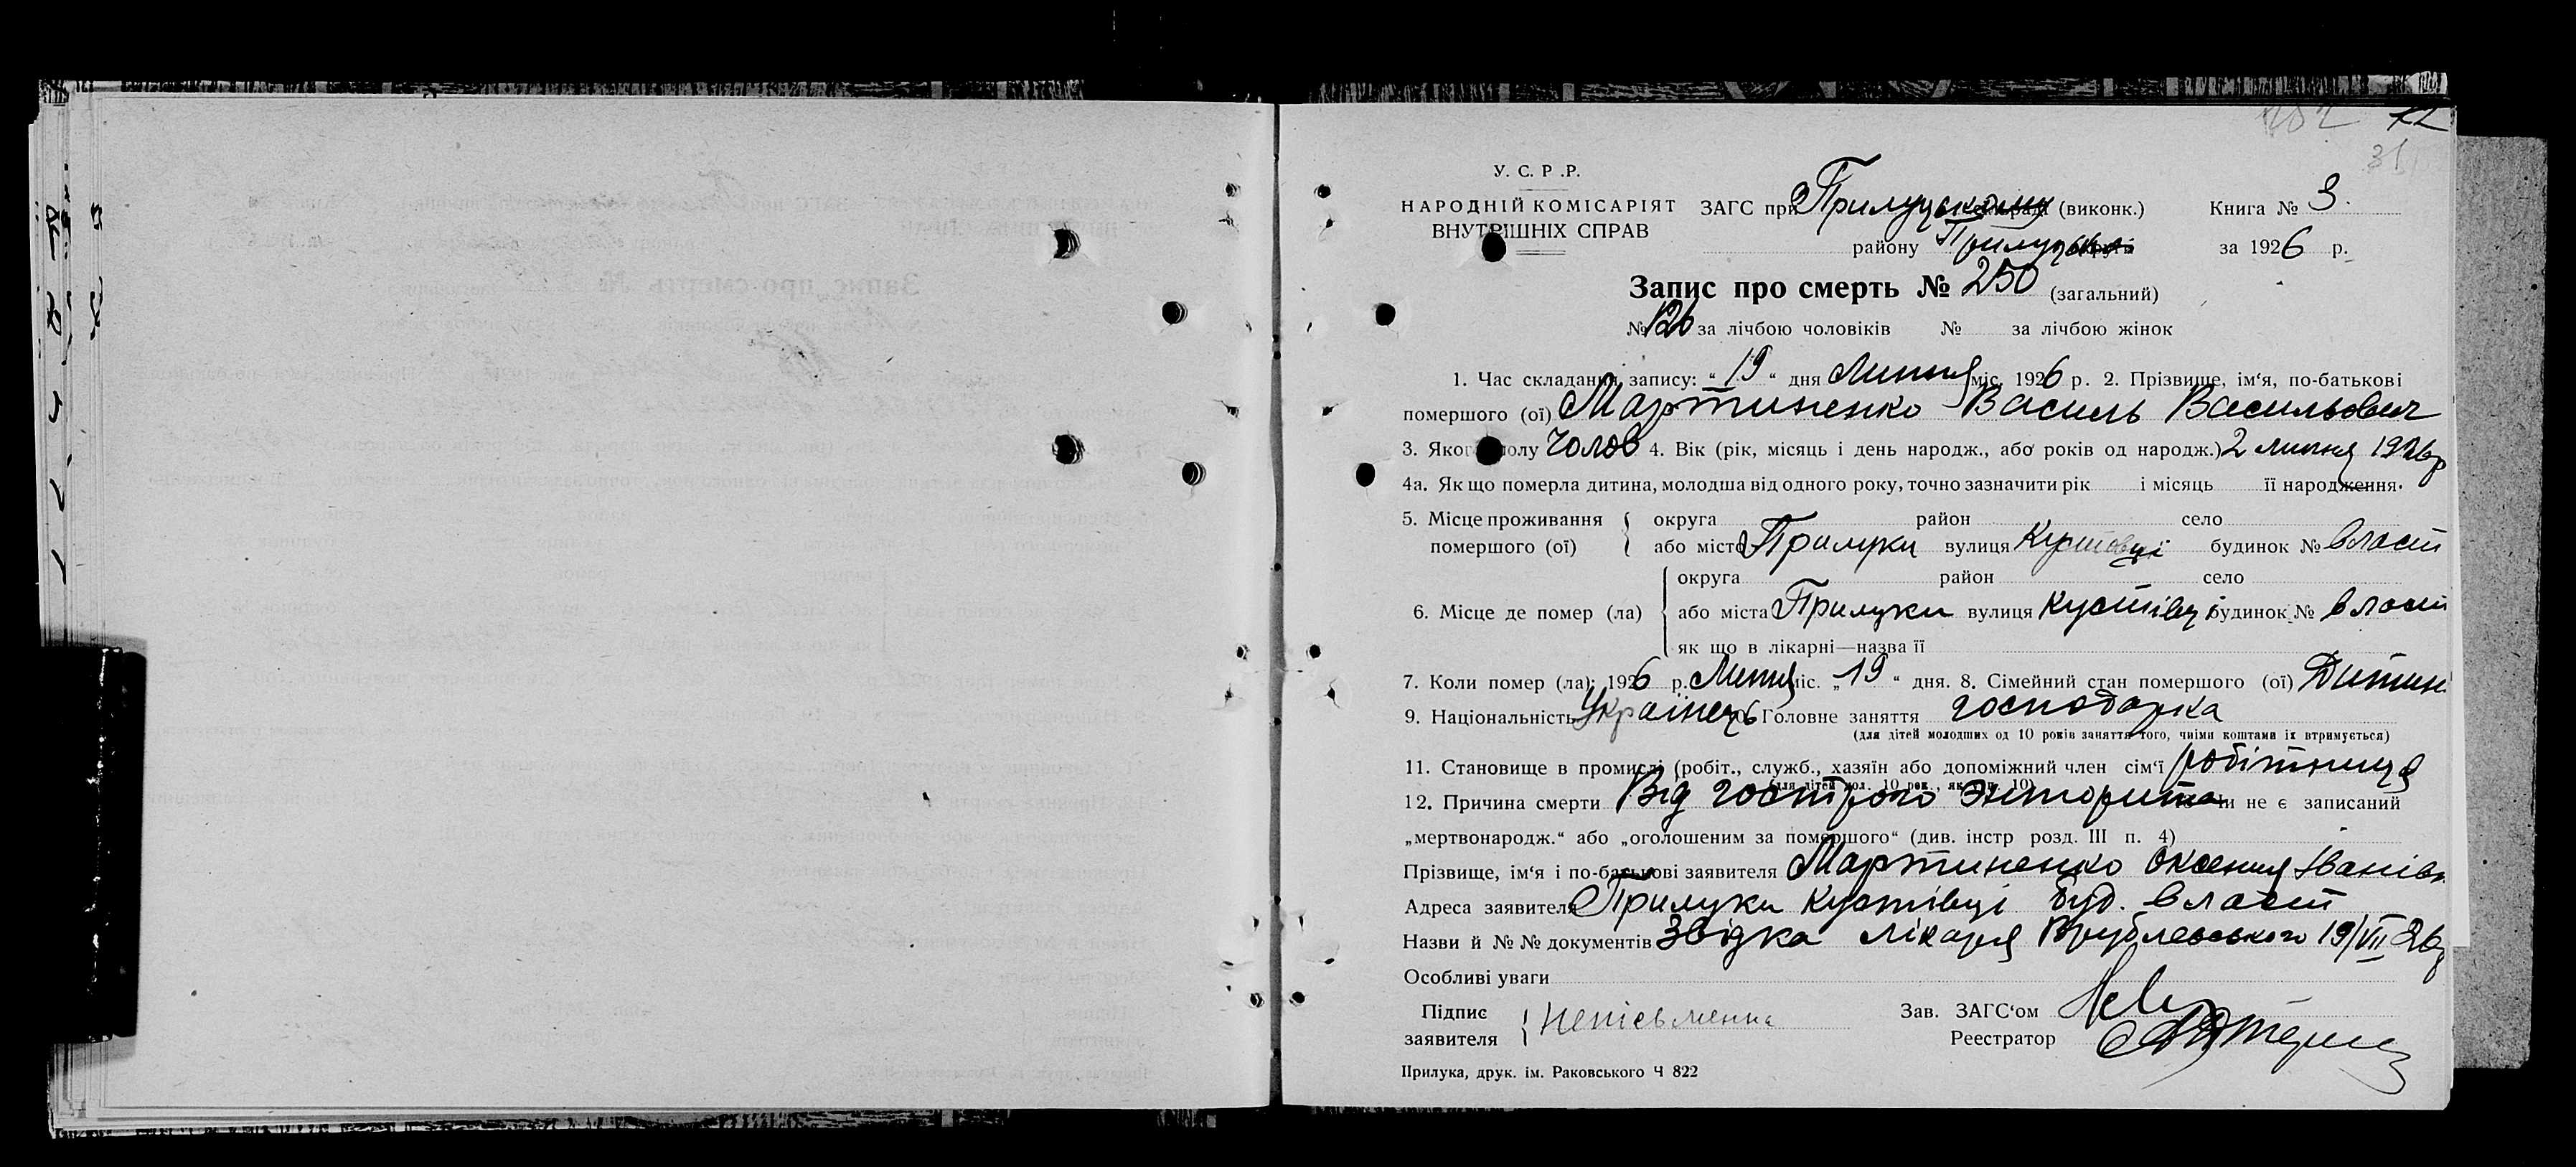 31
У. С. Р .Р.
НАРОДНІЙ КОМІСАРІЯТ ЗАГС при Прилуцькому (виконк.) Книга № 3.
ВНУТРІШНІХ СПРАВ району Прилуцько за 1926 р.
Запис про смерть № 250 (загальний)
№ 126 за лічбою чоловіків № за лічбою жінок
1. Час складання запису: „ 19 “ дня Липня міс. 1926 р. 2. Прізвище, ім‘я, по-батькові
помершого (ої) Мартиненко Василь Васильович
3. Якого полу Чолов 4. Вік (рік, місяць і день народж., або років од народж.) 2 липня 1926р
4а. Як що померла дитина, молодша від одного року, точно зазначити рік і місяць її народження.
5. Місце проживання округа район село
помершого (ої) або місто Прилуки вулиця Кустівці будинок № власт
округа район село
6. Місце де помер (ла) або міста Прилуки вулиця Кустівці будинок № власт
як що в лікарні—назва її
7. Коли помер (ла): 1926 р. Липня міс. „ 19 “ дня. 8. Сімейний стан помершого (ої) Дитин
9. Національність Українець Головне заняття господарка
(для дітей молодших од 10 років заняття того, чиїми коштами їх втримується)
11. Становище в промислі (робіт., служб., хазяїн або допоміжний член сім‘ї робітниця
12. Причина смерти Від гострого ентерита чи не є записаний
„мертвонародж.“ або „оголошеним за помершого“ (див. інстр розд. III п. 4)
Прізвище, ім‘я і по-батькові заявителя Мартиненко Оксения Іванівн
Адреса заявителя Прилуки Кустівці буд. власт
Назви й №№ документів Звідка лікаря Врублевського 19/VII 26р
Особливі уваги
Підпис Зав. ЗАГС‘ом
заявителя неписьменна Реестратор
Прилука, друк. ім. Раковського Ч 822